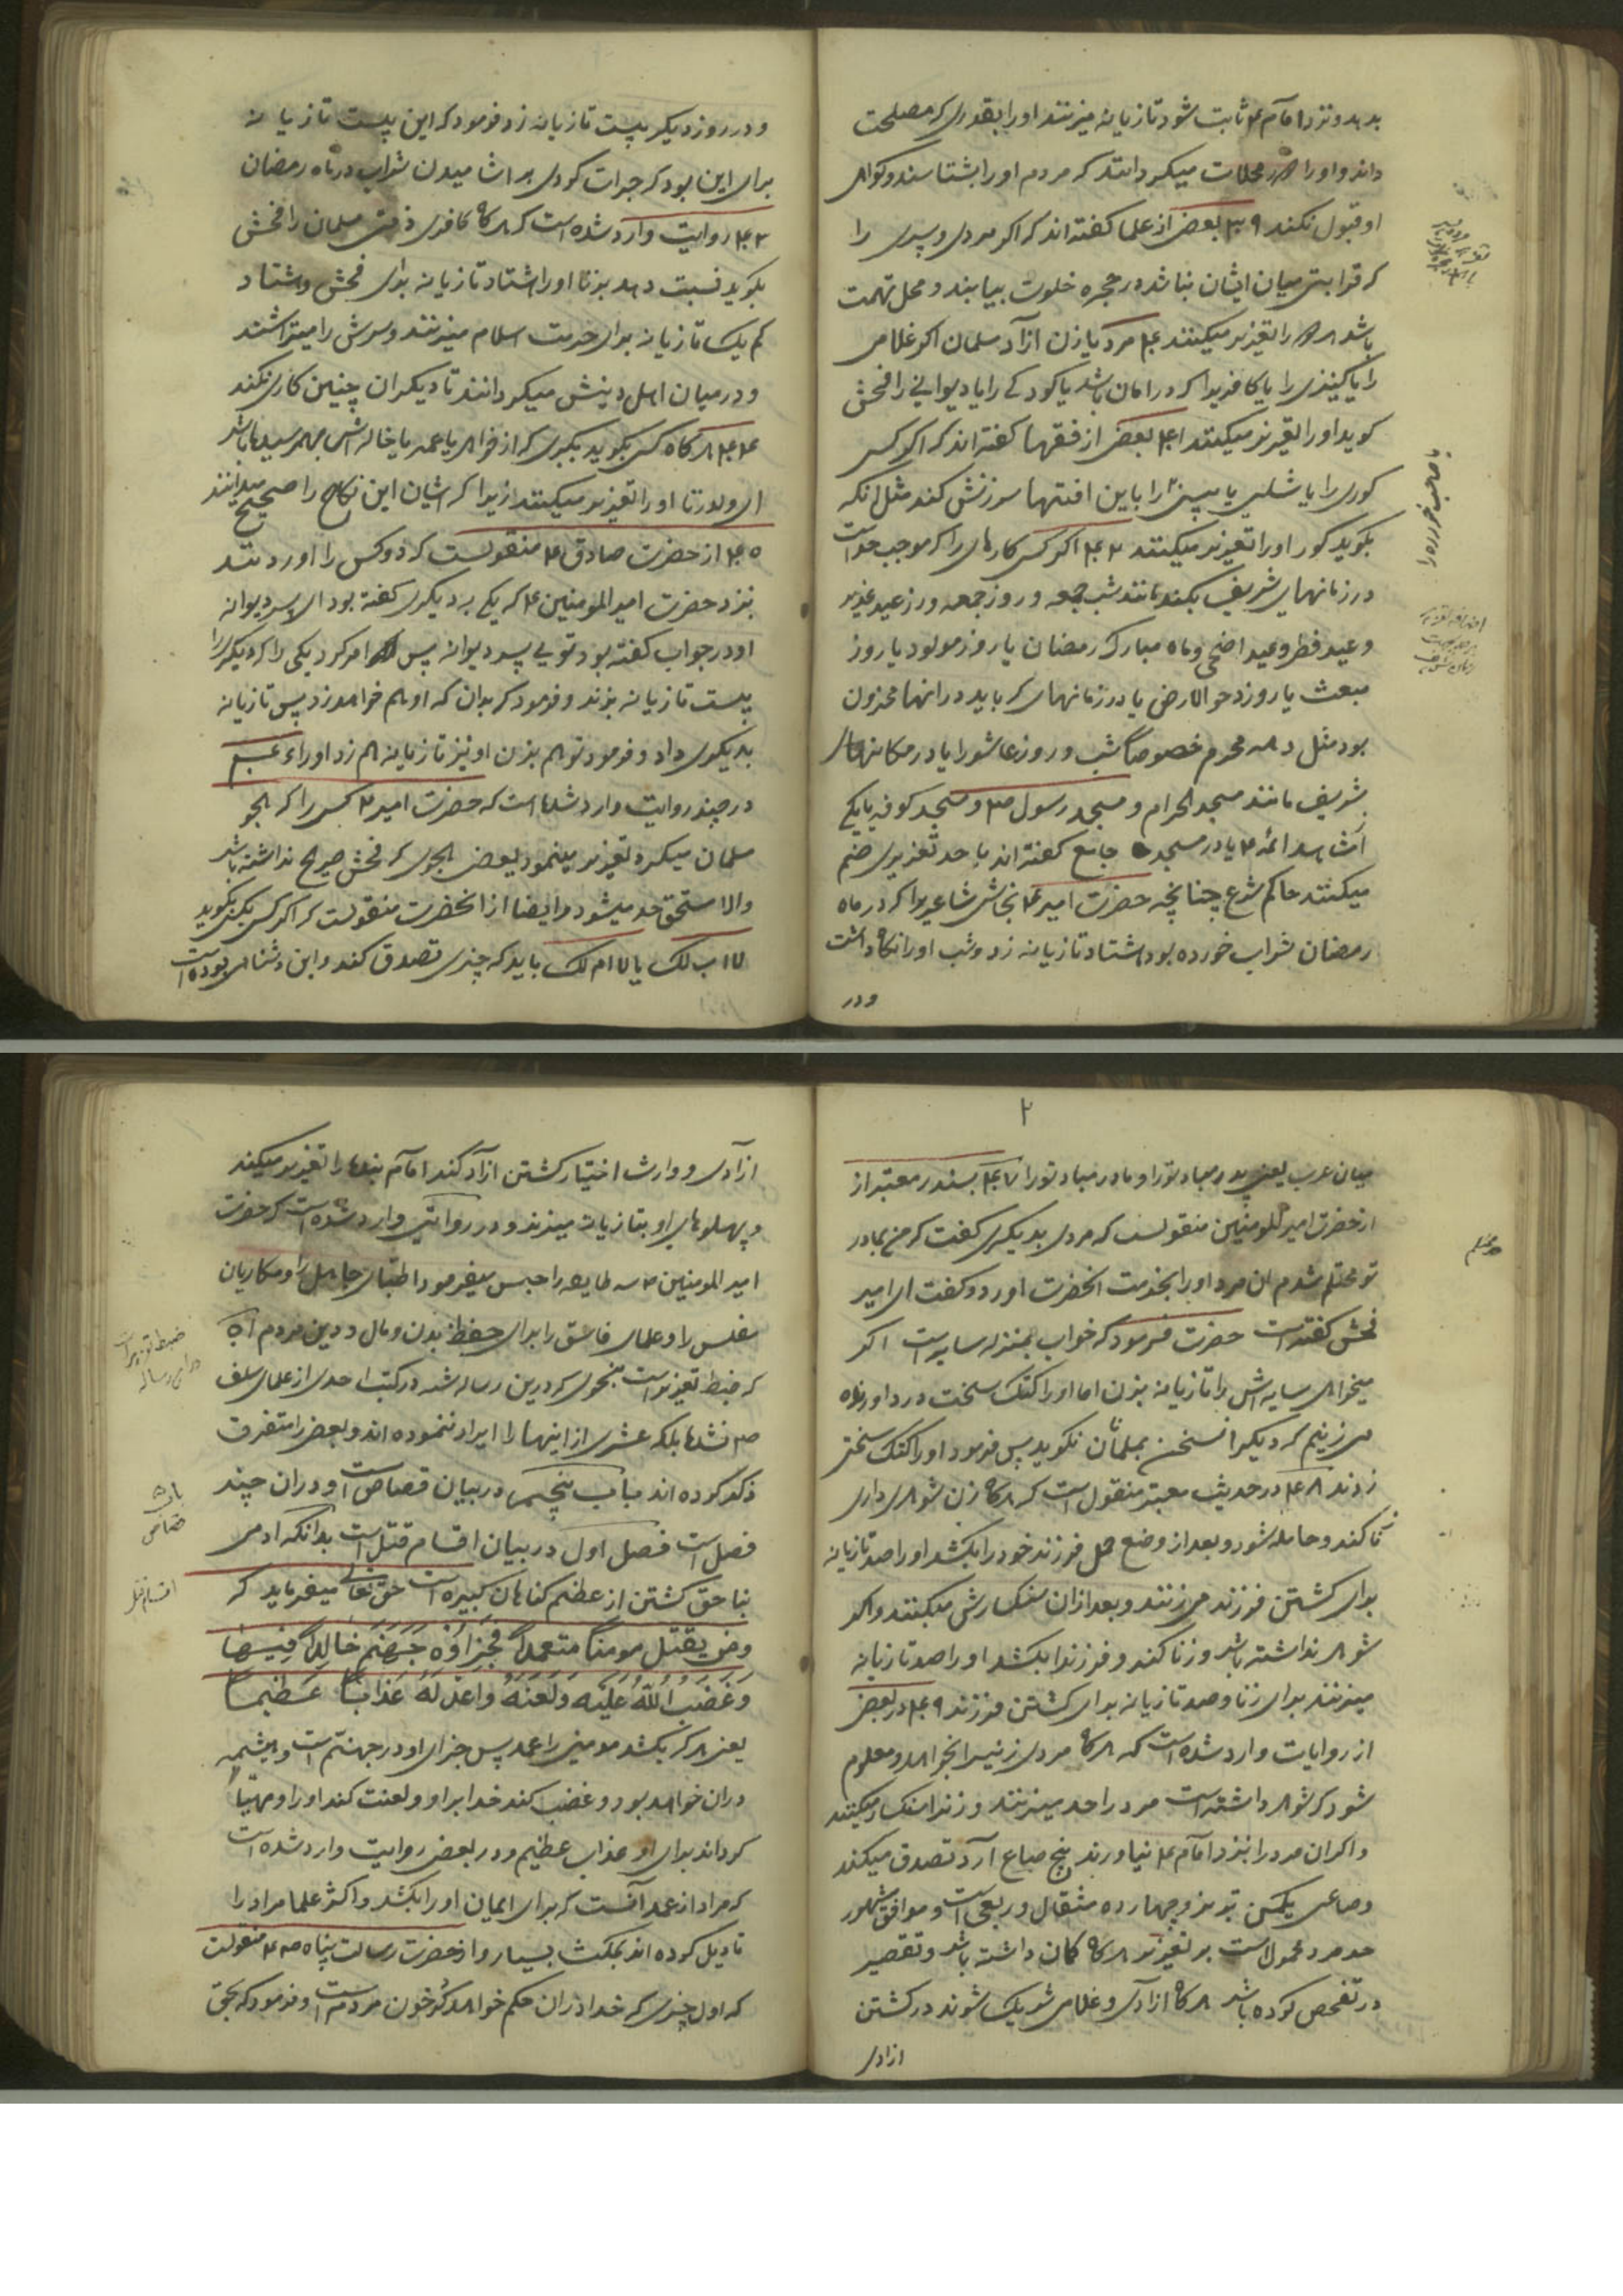 بدهد و نزد امام ۴ ثابت شود تازیانه میزنند او را بقدری که مصلحت
داند و او را در محلات میکردانند که مردم او را بشناسند و کواهی
او قبول نکنند ۳۹ بعض از علما کفته اند که اکر مردی و پسری را
که قرابتی میان ایشان نباشد در حجره خلوت بیابند و محل تهمت
باشد هر دو را تعزیر میکنند ۴۰ مرد یا زن ازاد مسلمان اکر غلامی
را یا کنیزی را یا کافریرا که در امان باشد یا کودکی را یا دیوانه را فحش
کوید او را تعزیر میکنند ۴۱ بعض از فقها کفته اند که اکر کسی
کوری را یا شلی یا پیسی را باین افتها سرزنش کند مثل انکه
بکوید کور او را تعزیر میکنند ۴۲ اکر کسی کارهای را که موجب حد است
در زمانهای شریف بکند مانند شب جمعه و روز جمعه و روز عید غدیر
و عید فطر و عید اضحی و ماه مبارک رمضان یا روز مولود یا روز
مبعث یا روز دحو الارض یا در زمانهای که باید در انها محزون
بود مثل دهه محرم خصوصا شب و روز عاشورا یا در مکانهای
شریف مانند مسجد الحرام و مسجد رسول ص و مسجد کوفه یا یکی
از مشاهد ائمه ۴ یا در مسجد جامع کفته اند با حد تعزیری ضم
میکنند حاکم شرع چنانچه حضرت امیر ۴ نجاشی شاعر را که در ماه
رمضان شراب خورده بود هشتاد تازیانه زد و شب او را نکاه داشت
و در
یا صاحب خرده را
و در روز دیکر بیست تازیانه زد و فرمود که این بیست تازیانه
برای این بود که جرات کردی بر اشامیدن شراب در ماه رمضان
۴۳ روایت وارد شده است که هرکاه کافری ذمی مسلمان را فحش
بکوید نسبت دهد بزنا او را هشتاد تازیانه برای فحش و هشتاد
کم یک تازیانه برای حرمت اسلام میزنند و سرش را میتراشند
و در میان اهل دینش میکردانند تا دیکران چنین کاری نکنند
۴۴ هرکاه کسی بکوید بکبری که از خواهر یا عمه یا خاله اش بهم رسیده باشد
ای ولد زنا او را تعزیر میکنند زیرا که ایشان این نکاح را صحیح میدانند
۴۵ از حضرت صادق ۴ منقولست که دو کس را اوردند
نزد حضرت امیر المومنین ۴ که یکی بدیکری کفته بود ای پسر دیوانه
او در جواب کفته بود تویی پسر دیوانه پس امر کرد یکی را که دیکری را
بیست تازیانه بزند و فرمود که بدان که او هم خواهد زد پس تازیانه
بدیکری داد و فرمود تو هم بزن او نیز تازیانه هم زد او را
در چند روایت وارد شده است که حضرت امیر ۴ کسی را که هجو
مسلمان میکرد تعزیر مینمود یعنی هجوی که فحش صریح نداشته باشد
والا مستحق حد میشود و ایضا از انحضرت منقولست که اکر کسی بکسی بکوید
لا اب لک یا لا ام لک باید که چیزی تصدق کند و این دشنامی بوده است
۲
میان عرب یعنی پدر مباد تو را و مادر مباد تو را ۴۷ بسند معتبر از
از حضرت امیر المومنین منقولست که مردی بدیکری کفت که من بمادر
تو محتلم شدم ان مرد او را بخدمت انحضرت اورد و کفت ای امیر
فحش کفته است حضرت فرمود که خواب بمنزله سایه است اکر
میخواهی سایه اش را تازیانه بزن اما او را کتک سخت درد اورنده
می زنیم که دیکر این سخن بمسلمانان نکوید پس فرمود او را کتک سختی
زدند ۴۸ در حدیث معتبر منقول است که هرکاه زن شوهر داری
زنا کند و حامله شود و بعد از وضع حمل فرزند خود را بکشد او را صد تازیانه
برای کشتن فرزند می زنند و بعد ازان سنکسارش میکنند و اکر
شوهر نداشته باشد و زنا کند و فرزند را بکشد او را صد تازیانه
میزنند برای زنا و صد تازیانه برای کشتن فرزند ۴۹ در بعض
از روایات وارد شده است که هرکاه مردی زنیرا بخواهد و معلوم
شود که شوهر داشته است مرد را حد میزنند و زن را سنکسار میکنند
و اکر ان مرد را بنزد امام ۴ نیاورند پنج صاع ارد تصدق میکند
و صاعی یکمن تبریز و چهارده مثقال و ربعی است و موافق مشهور
حد مرد محمول است بر تعزیر هرکاه کمان داشته باشد و تقصیر
در تفحص کرده باشد هرکاه ازادی و غلامی شریک شوند در کشتن
ازادی
ازادی و وارث اختیار کشتن ازاد کند امام بنده را تعزیر میکند
و پهلوهای او بتازیانه میزند و در روایتی وارد شده است که حضرت
امیر المومنین ۴ سه طایفه را حبس میفرمود اطبای جاهل را و مکاریان
مفلس را و علمای فاسق را برای حفظ بدن و مال و دین مردم
که ضبط تعزیر است بنحوی که درین رساله شد در کتب احدی از علمای سلف
نشده بلکه عشری از اینها را ایراد ننموده اند و بعض را متفرق
ذکر کرده اند باب پنجم در بیان قصاص است و دران چند
فصل است فصل اول در بیان اقسام قتل است بدانکه ادمی
بناحق کشتن از عظم کناهان کبیره است حق تعالی میفرماید که
ومن یقتل مومنا متعمدا فجزاؤه جهنم خالدا فیها
وغضب الله علیه ولعنه واعد له عذابا عظیما
یعنی هرکه بکشد مومنی را عمدا پس جزای او در جهنم است و همیشه
دران خواهد بود و غضب کند خدا بر او و لعنت کند او را و مهیا
کرداند برای او عذاب عظیم و در بعض روایت وارد شده است
که مراد از عمد آنست که برای ایمان او را بکشد و اکثر علما مراد را
تاویل کرده اند بمکث بسیار و از حضرت رسالت پناه ص منقولست
که اول چیزی که خدا دران حکم خواهد کرد خون مردم است و فرمود که بحق
اقسام قتل